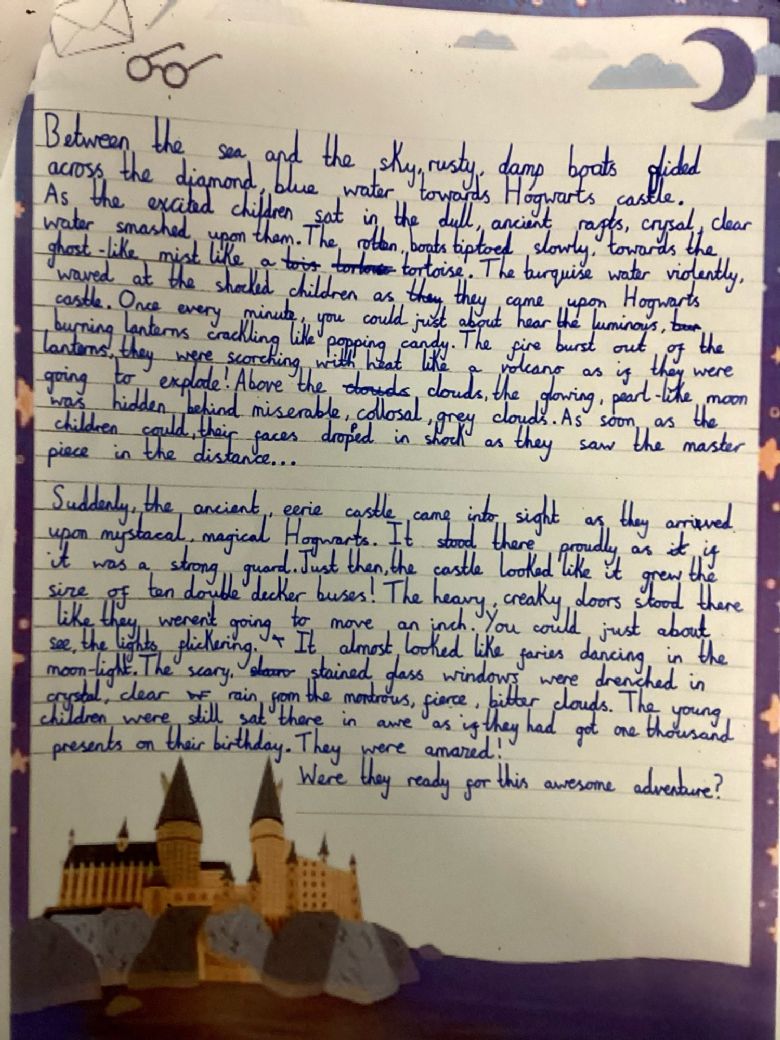 Between the sea and the sky, rusty, damp boats glided
across the diamond, blue water towards Hogwarts castle.
As the excited children sat in the dull, ancient ragts, crysal, clear
water smashed upon them. The rotten, boats tiptoed slowly, towards the
ghost-like, mist like a tois tortoise tortoise. The turquise water violently,
waved at the shocked children as they they came upon Hogwarts
castle. Once every minute, you could just about hear the luminous,
burning lanterns crackling like popping candy. The fire burst out of the
lanterns, they were scorching with heat like a volcano as if they were
going to explode! Above the clouds clouds, the glowing, pearl-like moon
was hidden behind miserable, collosal, grey clouds. As soon as the
children could, their faces droped in shock as they saw the master
piece in the distance...
Suddenly, the ancient, eerie castle came into sight as they arrived
upon mystacal, magical Hogwarts. It stood there proudly as it if
it was a strong guard. Just then, the castle looked like it grew the
size of ten double decker buses! The heavy, creaky doors stood there
like they weren't going to move an inch. You could just about
see, the lights flickering. It almost looked like faries dancing in the
moon-light. The scary, stained glass windows were drenched in
crystal, clear rain from the montrous, fierce, bitter clouds. The young
children were still sat there in awe as if they had got one thousand
presents on their birthday. They were amazed!
Were they ready for this awesome adventure?